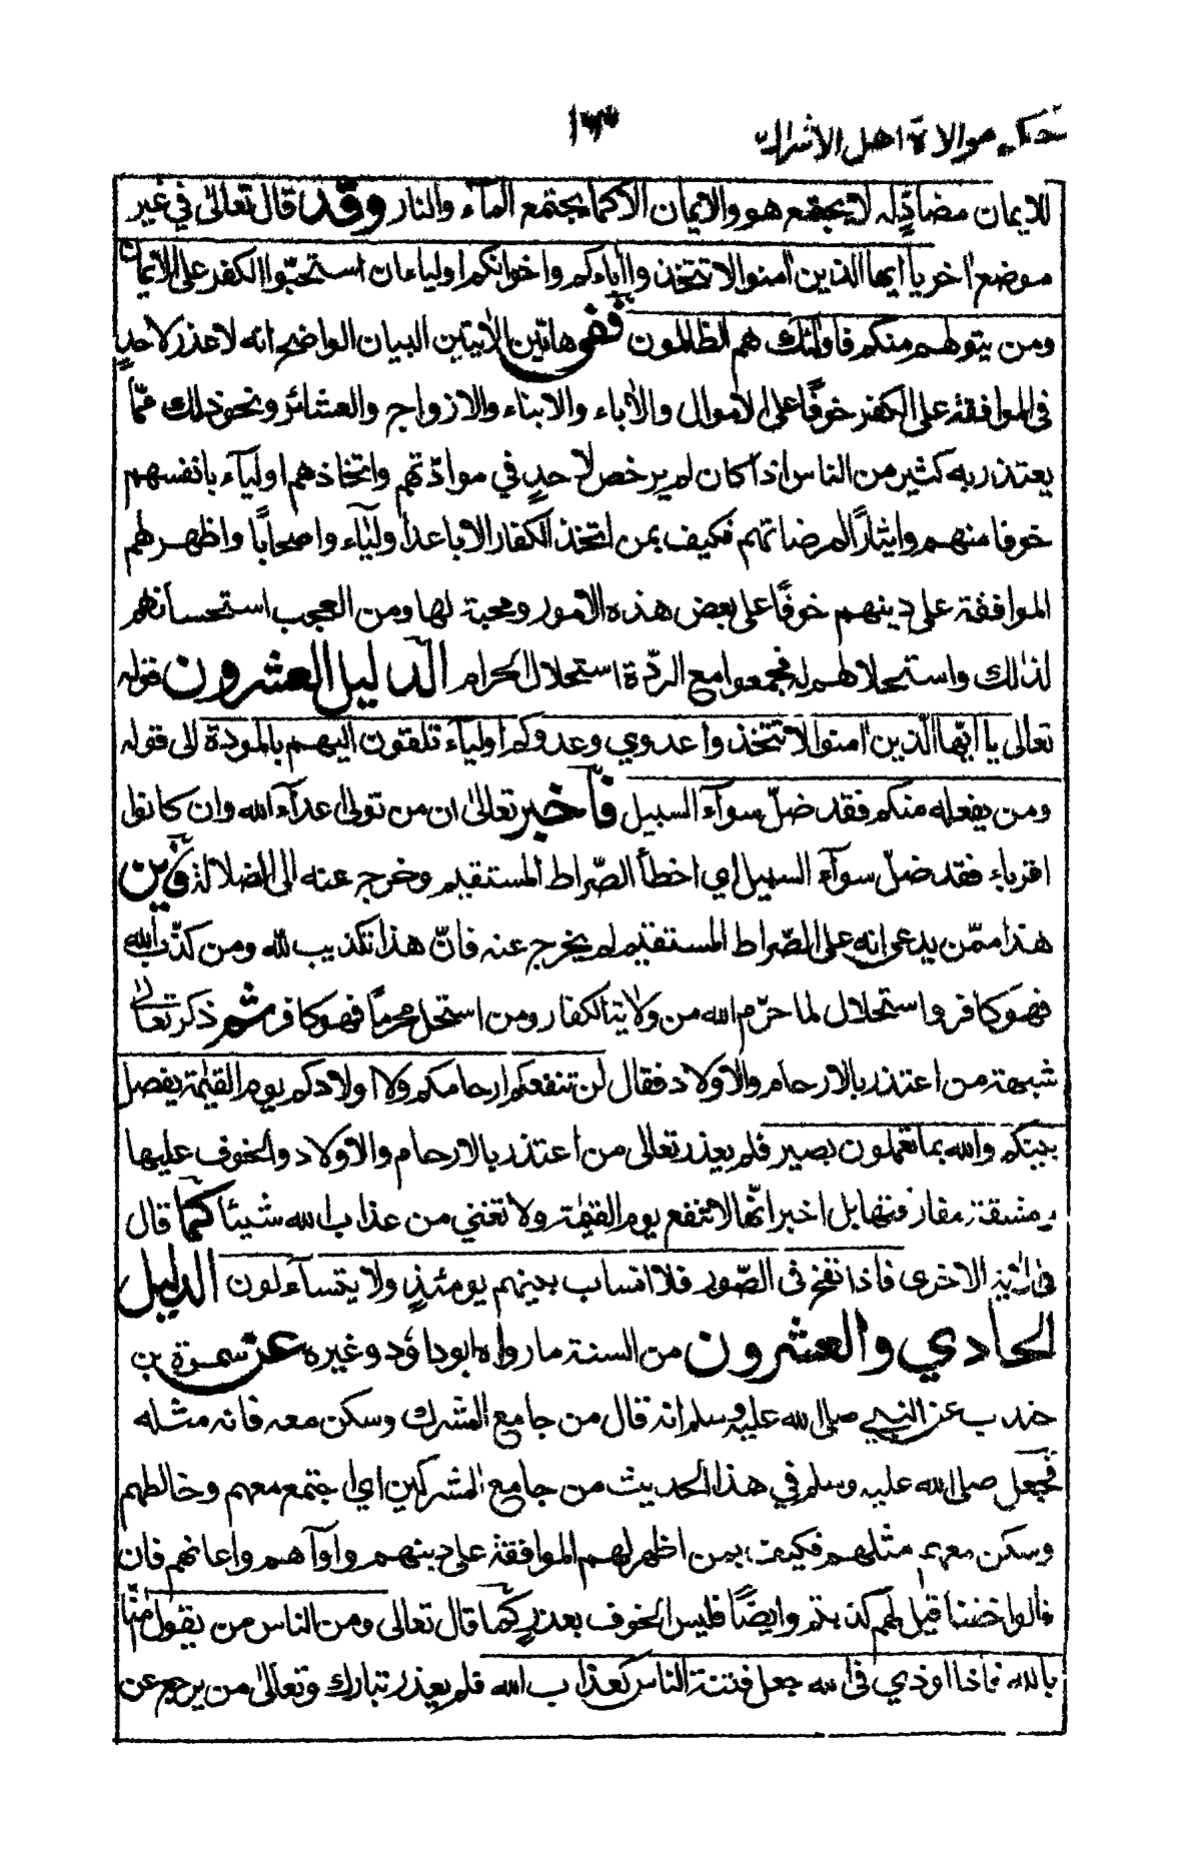 حكم موالاة اهل الاشراك ١٦٣
للايمان مضادّ له لا يجتمع هو والايمان الا كما يجتمع المآء والنار وقد قال تعالى في غير
موضع اخر يا ايها الذين امنوا لا تتخذوا اباءكم واخوانكم اولياء ان استحبّوا الكفر على الايمان
ومن يتولهم منكم فاولئك هم الظالمون ففي هاتين الايتين البيان الواضح انه لا عذر لاحدٍ
في الموافقة على الكفر خوفًا على الاموال والاباء والابناء والازواج والعشائر ونحو ذلك ممّا
يعتذر به كثير من الناس اذا كان لم يرخص لاحدٍ في موادّتهم واتخاذهم اوليآء بانفسهم
خوفا منهم وايثارًا لمرضاتهم فكيف بمن اتخذ الكفار الاباعد اوليآء واصحابًا واظهر لهم
الموافقة على دينهم خوفًا على بعض هذه الامور ومحبة لها ومن العجب استحسانهم
لذلك واستحلالهم له فجمعوا مع الردّة استحلال الحرام الدليل العشرون قوله
تعالى يا ايّها الّذين امنوا لا تتخذوا عدوي وعدوكم اوليآء تلقون اليهم بالمودة الى قوله
ومن يفعله منكم فقد ضلّ سوآء السبيل فأخبر تعالى ان من تولى اعدآء الله وان كانوا
اقرباء فقد ضلّ سوآء السبيل اي اخطأ الصّراط المستقيم وخرج عنه الى الضلالة فأين
هذا ممّن يدعى انه على الصّراط المستقيم لم يخرج عنه فانّ هذا تكذيب لله ومن كذّب الله
فهو كافر واستحلال لما حرّم الله من ولاية الكفار ومن استحل محرمًا فهو كافر ثم ذكر تعالى
شبهة من اعتذر بالارحام والاولاد فقال لن تنفعكم ارحامكم ولا اولادكم يوم القيمة يفصل
بينكم والله بما تعملون بصير فلم يعذر تعالى من اعتذر بالارحام والاولاد والخوف عليها
ومشقة مفارقتها بل اخبر انّها لا تنفع يوم القيمة ولا تغني من عذاب الله شيئا كما قال
في الاية الاخرى فاذا نفخ في الصّور فلا انساب بينهم يومئذٍ ولا يتسآءلون الدليل
الحادي والعشرون من السنة ما رواه ابو داؤد وغيره عن سمرة بن
جندب عن النبي صلى الله عليه وسلم انه قال من جامع المشرك وسكن معه فانه مثله
فجعل صلى الله عليه وسلم في هذا الحديث من جامع المشركين اي اجتمع معهم وخالطهم
وسكن معهم مثلهم فكيف بمن اظهر لهم الموافقة على دينهم وآواهم واعانهم فان
قالوا خفنا قيل لهم كذبتم وايضًا فليس الخوف بعذرٍ كما قال تعالى ومن الناس من يقول امنّا
بالله فاذا اوذي في الله جعل فتنة الناس كعذاب الله فلم يعذر تبارك وتعالى من يرجع عن